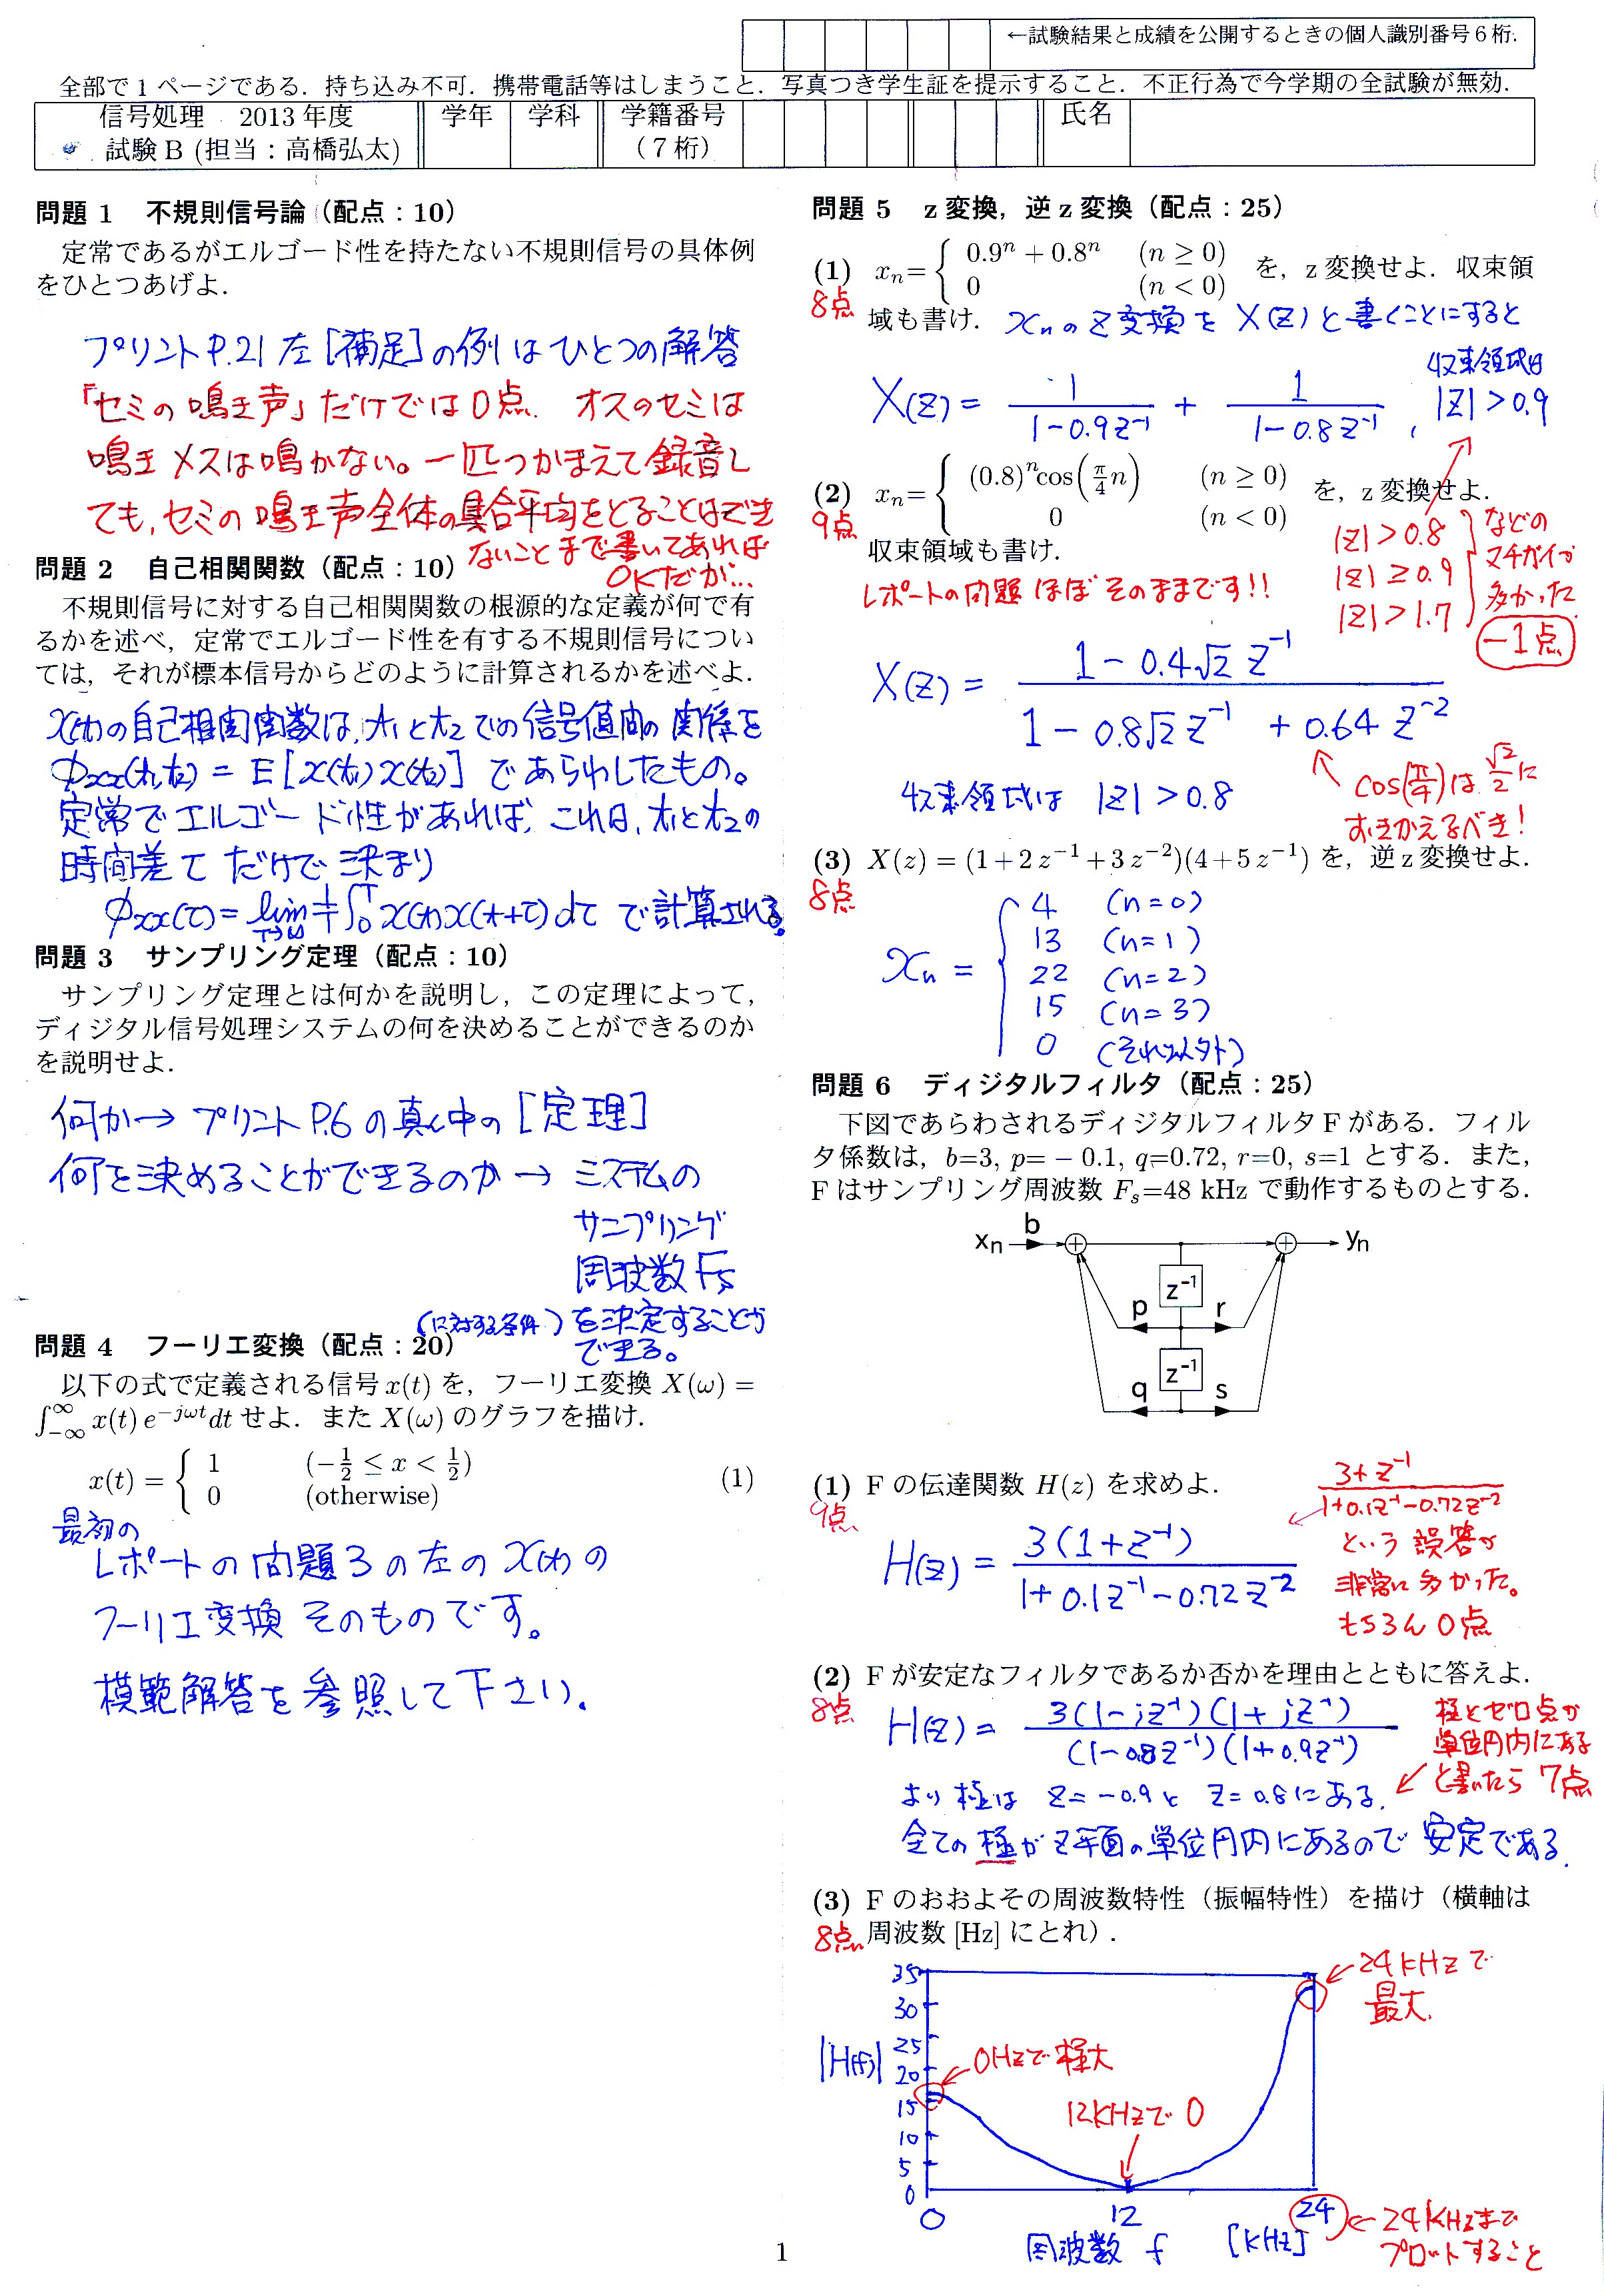 ←試験結果と成績を公開するときの個人識別番号6桁.
全部で1ページである. 持ち込み不可. 携帯電話等はしまうこと. 写真つき学生証を提示すること. 不正行為で今学期の全試験が無効.
信号処理 2013年度
試験B (担当：高橋弘太)
学年
学科
学籍番号
（7桁）
氏名
問題 1 不規則信号論（配点：10）
定常であるがエルゴード性を持たない不規則信号の具体例
をひとつあげよ.
プリントP.21 左［補足］の例はひとつの解答
「セミの鳴き声」だけでは0点. オスのセミは
鳴き メスは鳴かない。一匹つかまえて録音し
ても,セミの鳴き声全体の集合平均をとることはでき
ないことまで書いてあれば
OKだが...
問題 2 自己相関関数（配点：10）
不規則信号に対する自己相関関数の根源的な定義が何で有
るかを述べ，定常でエルゴード性を有する不規則信号につい
ては，それが標本信号からどのように計算されるかを述べよ.
x(t)の自己相関関数は,t₁とt₂での信号値間の関係を
φxx(t₁,t₂) = E[x(t₁)x(t₂)] であらわしたもの。
定常でエルゴード性があれば, これは,t₁とt₂の
時間差τだけで決まり
φxx(τ)= lim T→∞ 1/T ∫₀ᵀ x(t)x(t+τ)dτ で計算される。
問題 3 サンプリング定理（配点：10）
サンプリング定理とは何かを説明し，この定理によって，
ディジタル信号処理システムの何を決めることができるのか
を説明せよ.
何か→ プリントP.6の真ん中の［定理］
何を決めることができるのか→ システムの
サンプリング
周波数Fs
(に対する条件)を決定することが
できる。
問題 4 フーリエ変換（配点：20）
以下の式で定義される信号 x(t) を，フーリエ変換 X(ω) =
∫_{-∞}^{∞} x(t) e^{-jωt}dt せよ. また X(ω) のグラフを描け.
x(t) = { 1 (-1/2 ≤ x < 1/2) (1)
0 (otherwise)
最初の
レポートの問題3の左のx(t)の
フーリエ変換そのものです。
模範解答を参照して下さい.
問題 5 z変換，逆z変換（配点：25）
(1) xₙ= { 0.9ⁿ + 0.8ⁿ (n ≥ 0) を，z変換せよ. 収束領
0 (n < 0)
8点
域も書け. xₙのZ変換を X(Z)と書くことにすると
X(Z) = 1/(1-0.9Z⁻¹) + 1/(1-0.8Z⁻¹) ,
収束領域は
|Z|>0.9
(2) xₙ= { (0.8)ⁿcos(π/4 n) (n ≥ 0) を，z変換せよ.
0 (n < 0)
9点
収束領域も書け.
|Z|>0.8
|Z|≥0.9
|Z|>1.7
などの
マチガイが
多かった
-1点
レポートの問題ほぼそのままです!!
X(Z) = (1-0.4√2 Z⁻¹)/(1-0.8√2 Z⁻¹ +0.64 Z⁻²)
収束領域は |Z|>0.8
cos(π/4)は √2/2 に
おきかえるべき!
(3) X(z) = (1+2z⁻¹+3z⁻²)(4+5z⁻¹) を，逆z変換せよ.
8点
xₙ = { 4 (n=0)
13 (n=1)
22 (n=2)
15 (n=3)
0 (それ以外)
問題 6 ディジタルフィルタ（配点：25）
下図であらわされるディジタルフィルタFがある. フィル
タ係数は，b=3, p= − 0.1, q=0.72, r=0, s=1 とする. また，
Fはサンプリング周波数 Fₛ=48 kHz で動作するものとする.
xn b + + yn
z⁻¹
p r
z⁻¹
q s
(1) Fの伝達関数 H(z) を求めよ.
9点
H(z) = 3(1+Z⁻¹)/(1+0.1Z⁻¹-0.72Z⁻²)
(3+Z⁻¹)/(1+0.1Z⁻¹-0.72Z⁻²)
という誤答が
非常に多かった。
もちろん0点
(2) Fが安定なフィルタであるか否かを理由とともに答えよ.
8点
H(z) = 3(1-jZ⁻¹)(1+jZ⁻¹)/(1-0.8Z⁻¹)(1+0.9Z⁻¹)
より 極は Z=-0.9と Z=0.8にある.
全ての極がZ平面の単位円内にあるので 安定である.
極とゼロ点が
単位円内にある
と書いたら 7点
(3) Fのおおよその周波数特性（振幅特性）を描け（横軸は
8点
周波数 [Hz] にとれ）.
35
30
25
20
15
10
5
0
|H(f)|
0Hzで極大
12kHzで 0
24kHzで
最大.
0 12 24
周波数 f [kHz]
←24kHzまで
プロットすること
1